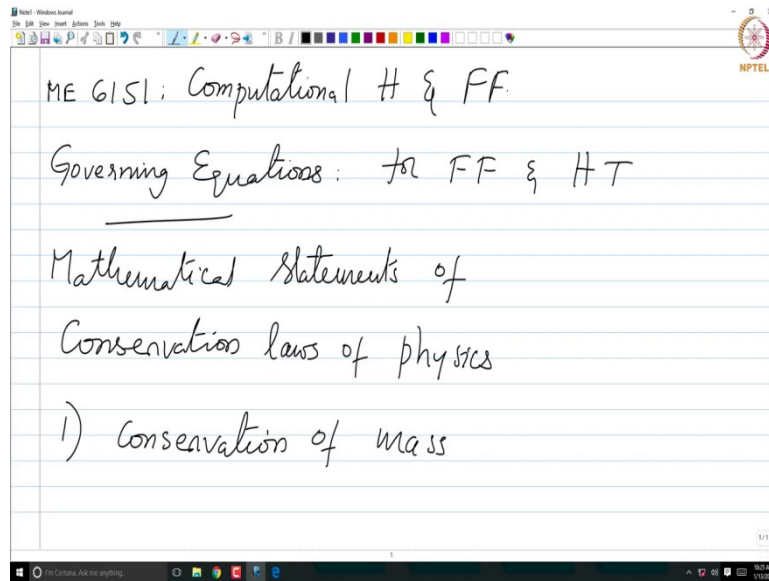 Note1 - Windows Journal
File Edit View Insert Actions Tools Help
NPTEL
ME 6151: Computational H & FF.
Governing Equations: for FF & HT
Mathematical statements of
Conservation laws of physics
1) Conservation of mass
1/1
1
I'm Cortana. Ask me anything.